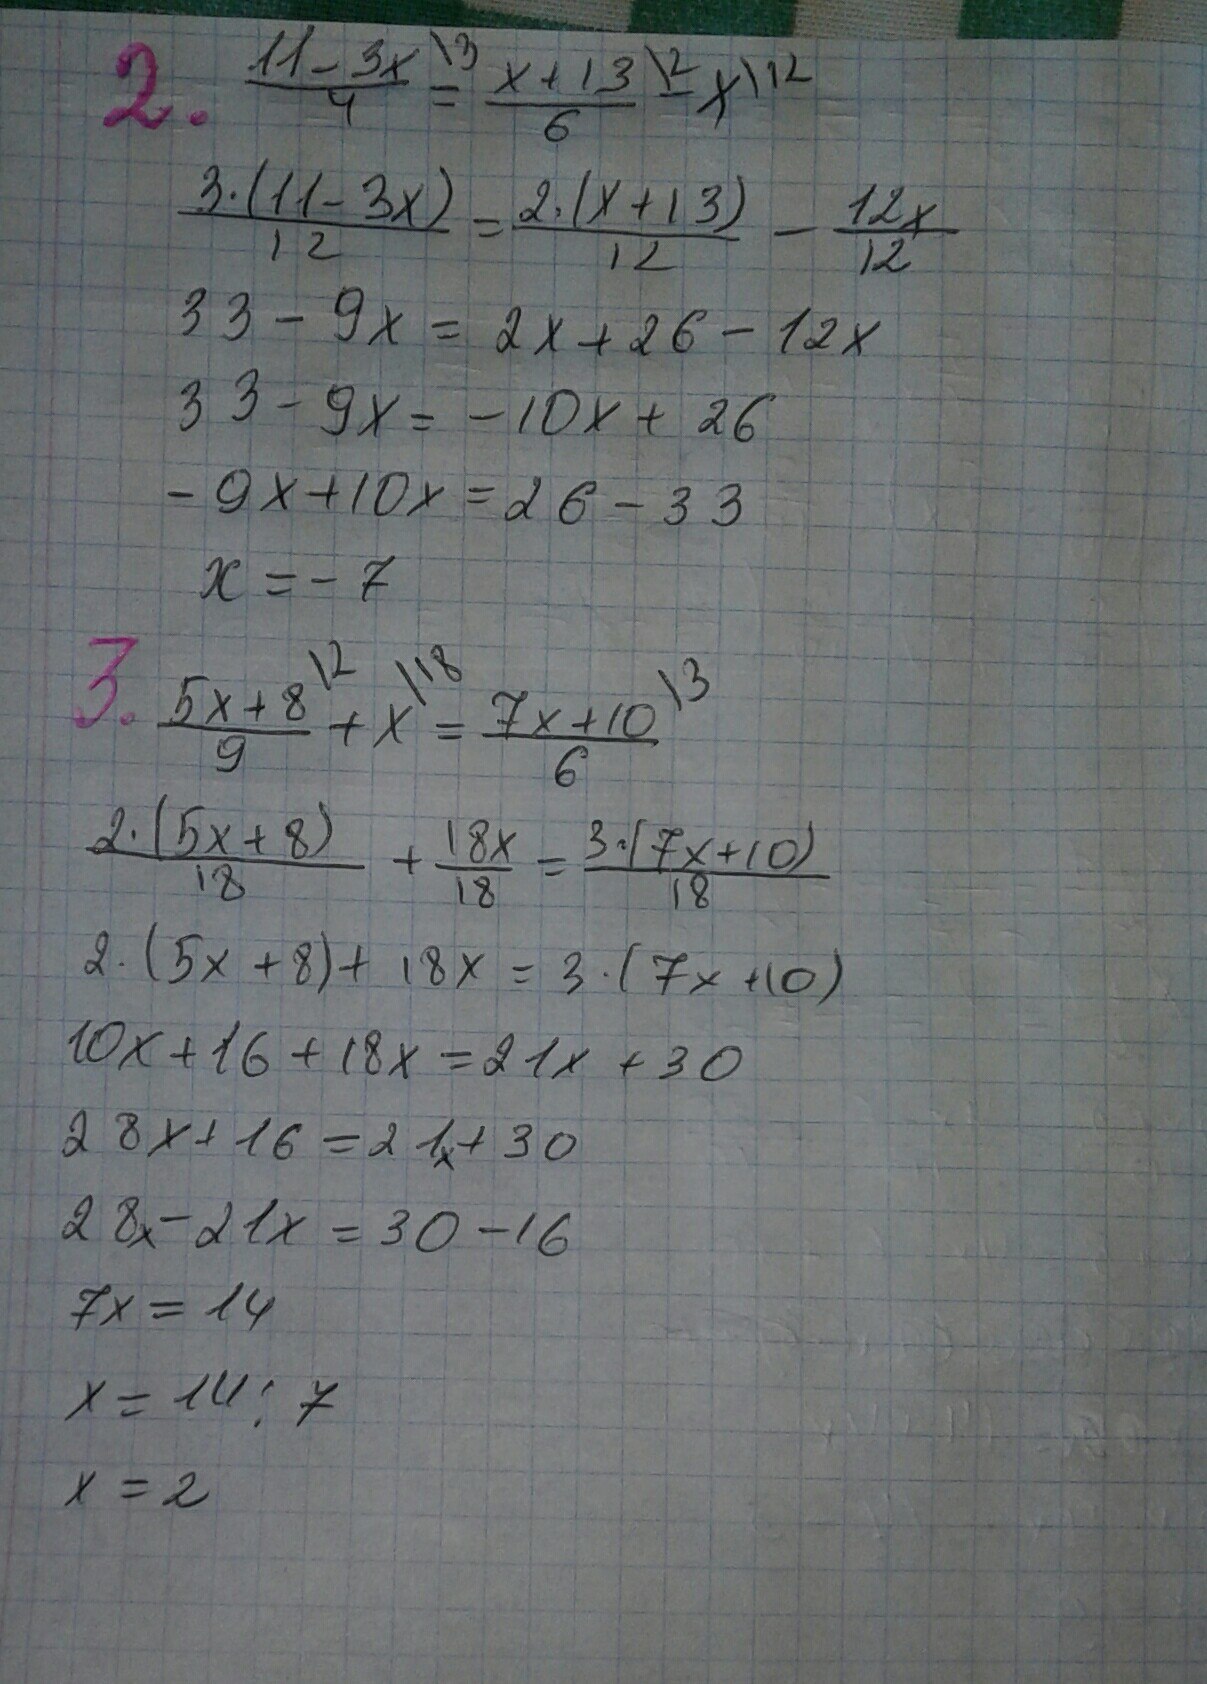 2. (11-3x)/4 \3 = (x+13)/6 \2 - x \12
3·(11-3x)/12 = 2·(x+13)/12 - 12x/12
33-9x=2x+26-12x
33-9x=-10x+26
-9x+10x=26-33
x=-7
3. (5x+8)/9 \2 + x \18 = (7x+10)/6 \3
2·(5x+8)/18 + 18x/18 = 3·(7x+10)/18
2·(5x+8)+18x=3·(7x+10)
10x+16+18x=21x+30
28x+16=21x+30
28x-21x=30-16
7x=14
x=14:7
x=2